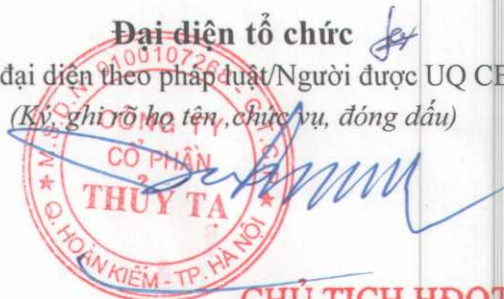 Đại diện tổ chức
đại diện theo pháp luật/Người được UQ CB
(Ký, ghi rõ họ tên, chức vụ, đóng dấu)
M.S.D.N: 0100107268 - C.T.C.P
CÔNG TY
CỔ PHẦN
THỦY TẠ
Q. HOÀN KIẾM - TP. HÀ NỘI
CHỦ TỊCH HĐQT